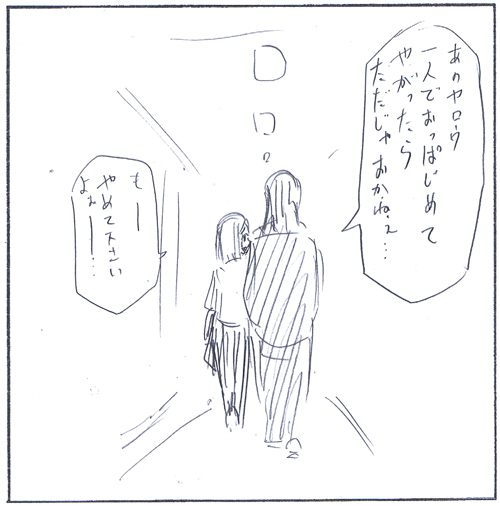 あのヤロウ
一人でおっぱじめて
やがったら
ただじゃおかねェ…
もー
やめて下さい
よォー…